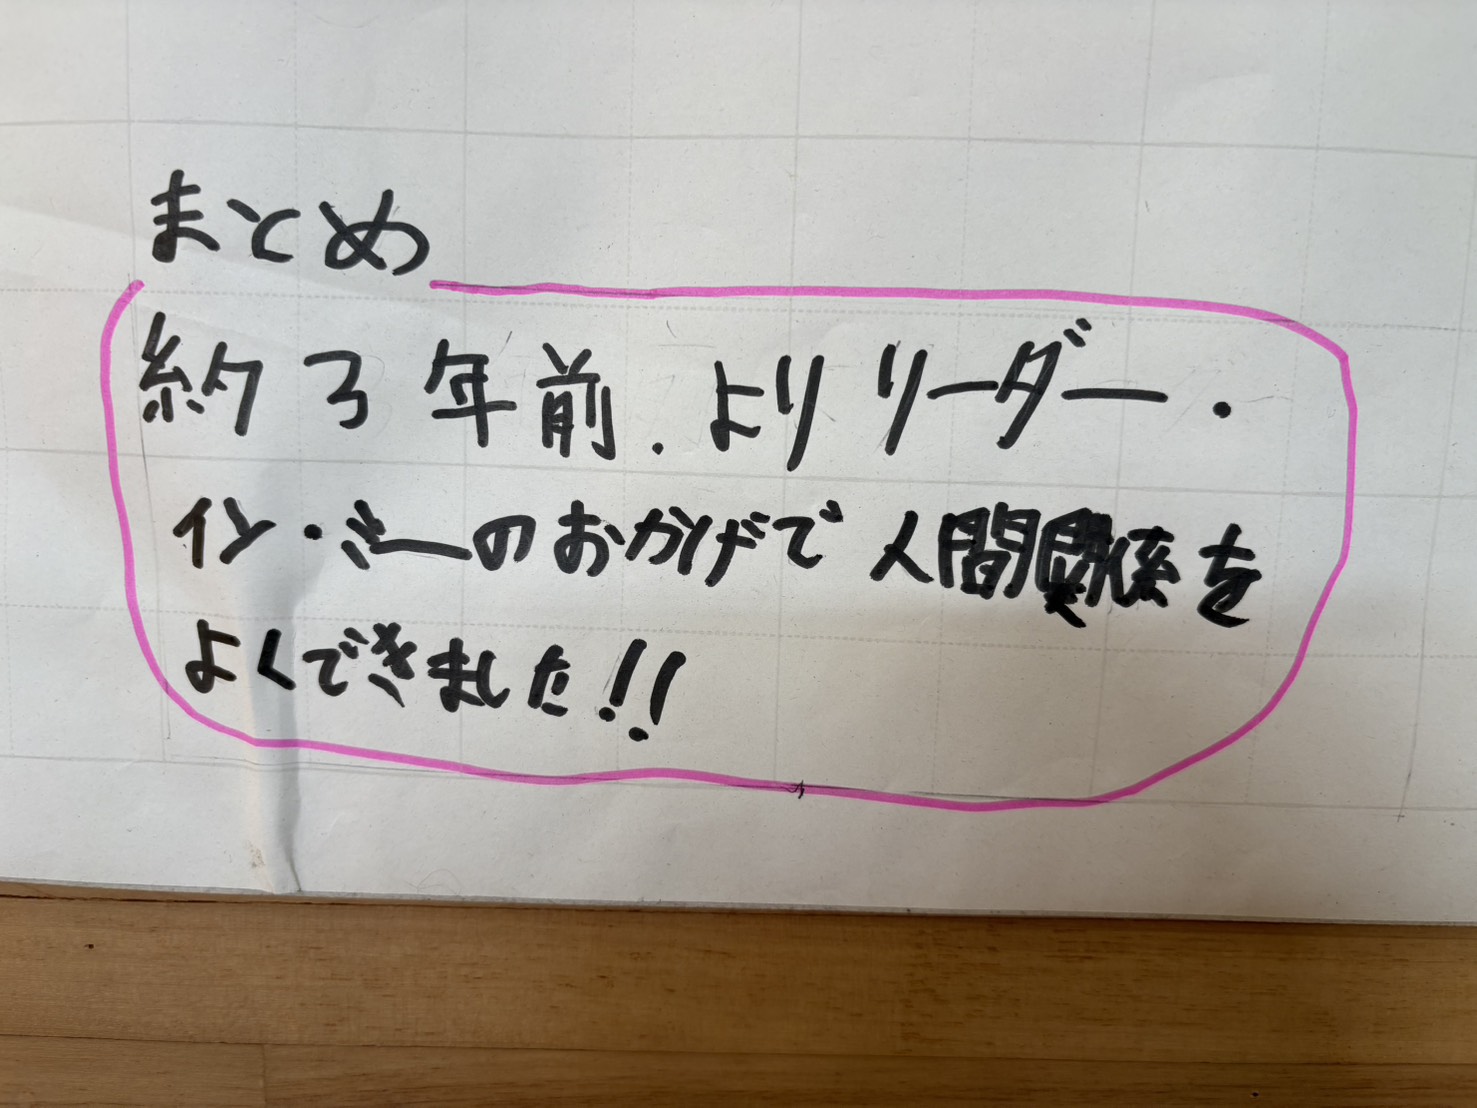 まとめ
約3年前.よりリーダー・
イン・バーのおかげで人間関係を
よくできました!!